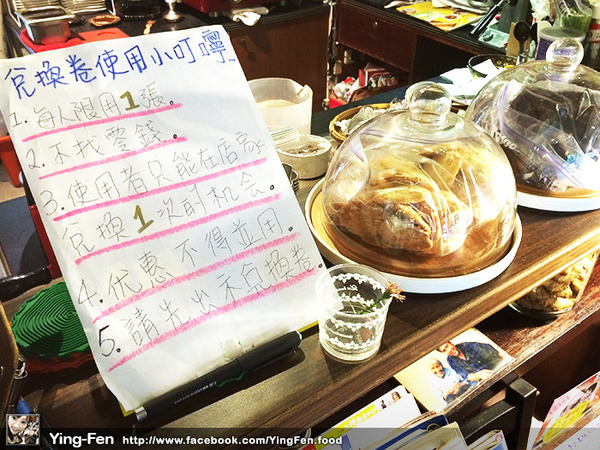 兌換卷使用小叮嚀...
1. 每人限用1張。
2. 不找零錢。
3. 使用者只能在店家
兌換1次的机会。
4. 优惠不得並用。
5. 請先出示兌換卷。
Ying-Fen http://www.facebook.com/YingFen.food